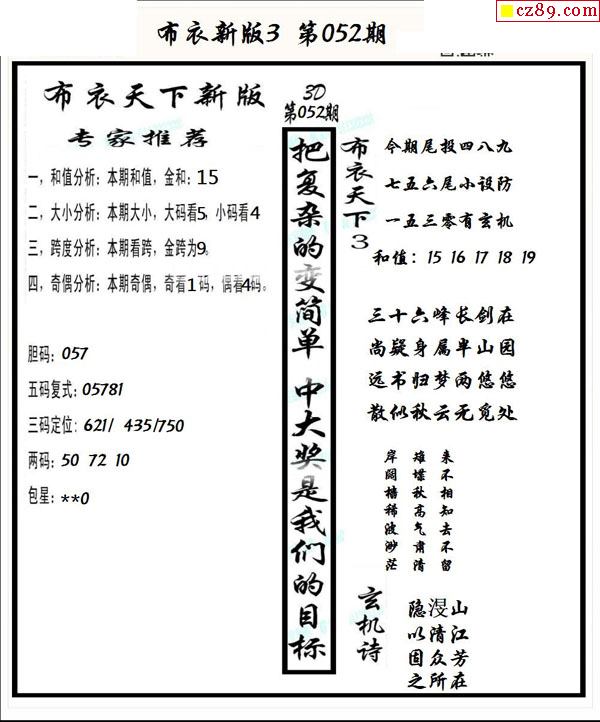 cz89.com
布衣新版3 第052期
布衣天下新版
专家推荐
一，和值分析：本期和值，金和：15
二，大小分析：本期大小，大码看5，小码看4
三，跨度分析：本期看跨，金跨为9。
四，奇偶分析：本期奇偶，奇看1码，偶看4码。
胆码：057
五码复式：05781
三码定位：621/ 435/750
两码：50 72 10
包星：**0
3D
第052期
把复杂的变简单 中大奖是我们的目标
布衣天下3
今期尾投四八九
七五六尾小设防
一五三零有玄机
和值：15 16 17 18 19
三十六峰长剑在
尚疑身属半山园
远书归梦两悠悠
散似秋云无觅处
来不相知去不留
雉堞秋高气肃清
岸阔樯稀波渺茫
玄机诗
山江芳在
清众所
隐以固之